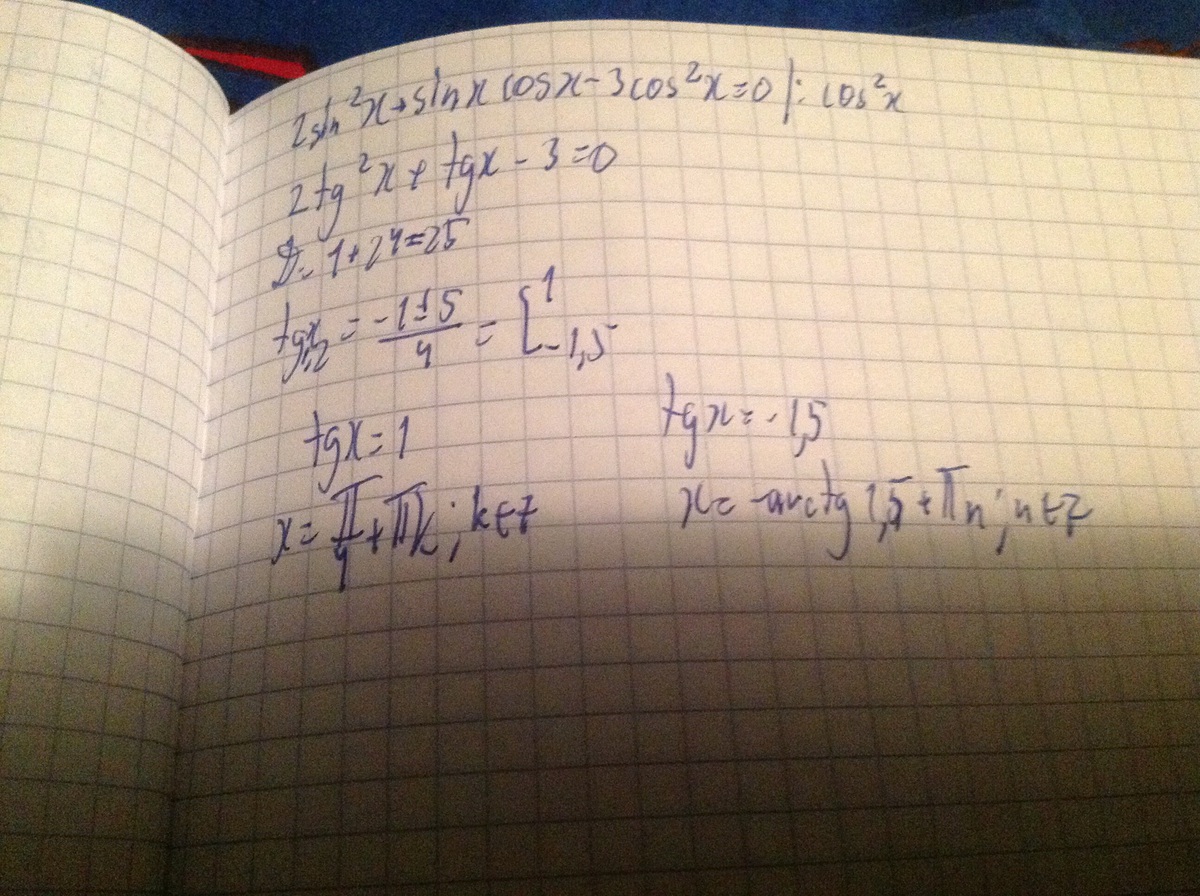 2sin²x+sinx cosx-3cos²x=0 |: cos²x
2tg²x+tgx-3=0
D=1+24=25
tgx₁,₂ = (-1±5)/4 = [1 -1,5
tgx=1 tgx=-1,5
x=π/4+πk; k∈Z x=-arctg 1,5+πn; n∈Z